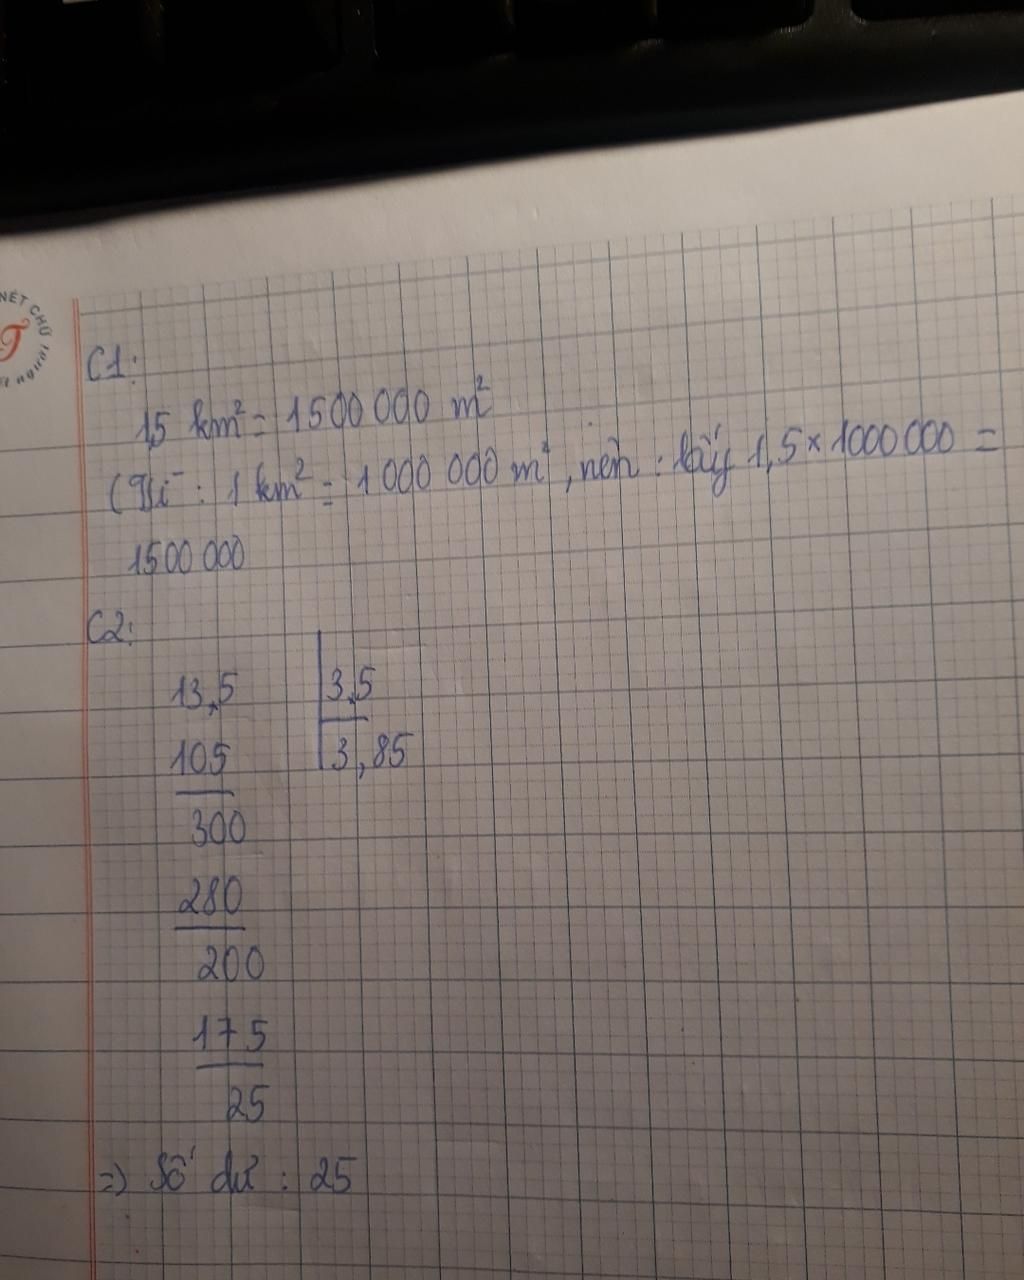 NÉT CHỮ
C1:
15 km² = 1500 000 m²
(Vì : 1 km² = 1 000 000 m², nên : lấy 1,5 × 1000 000 =
1500 000
C2:
13,5 3,5
105 3,85
300
280
200
175
25
=) Số dư : 25